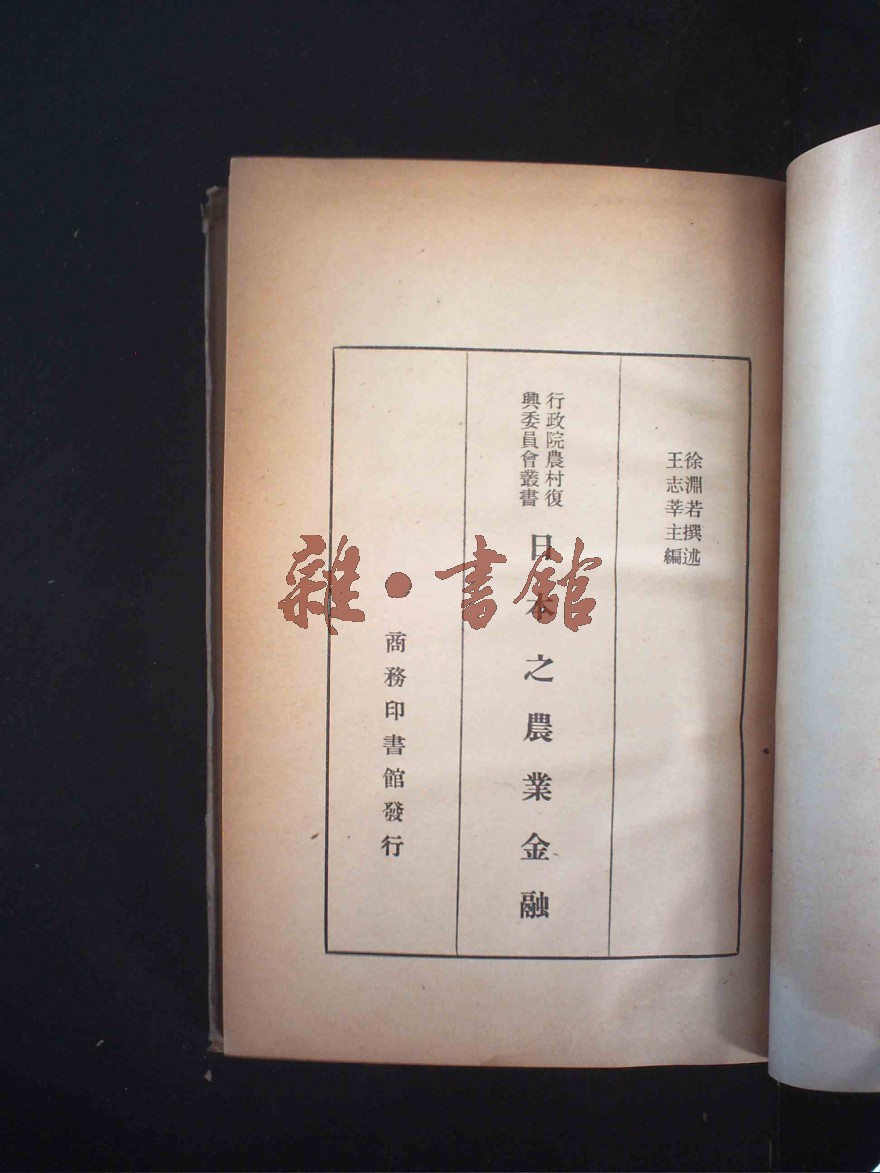 徐淵若撰述
王志莘主編
行政院農村復
興委員會叢書
日本之農業金融
商務印書館發行
雜·書館